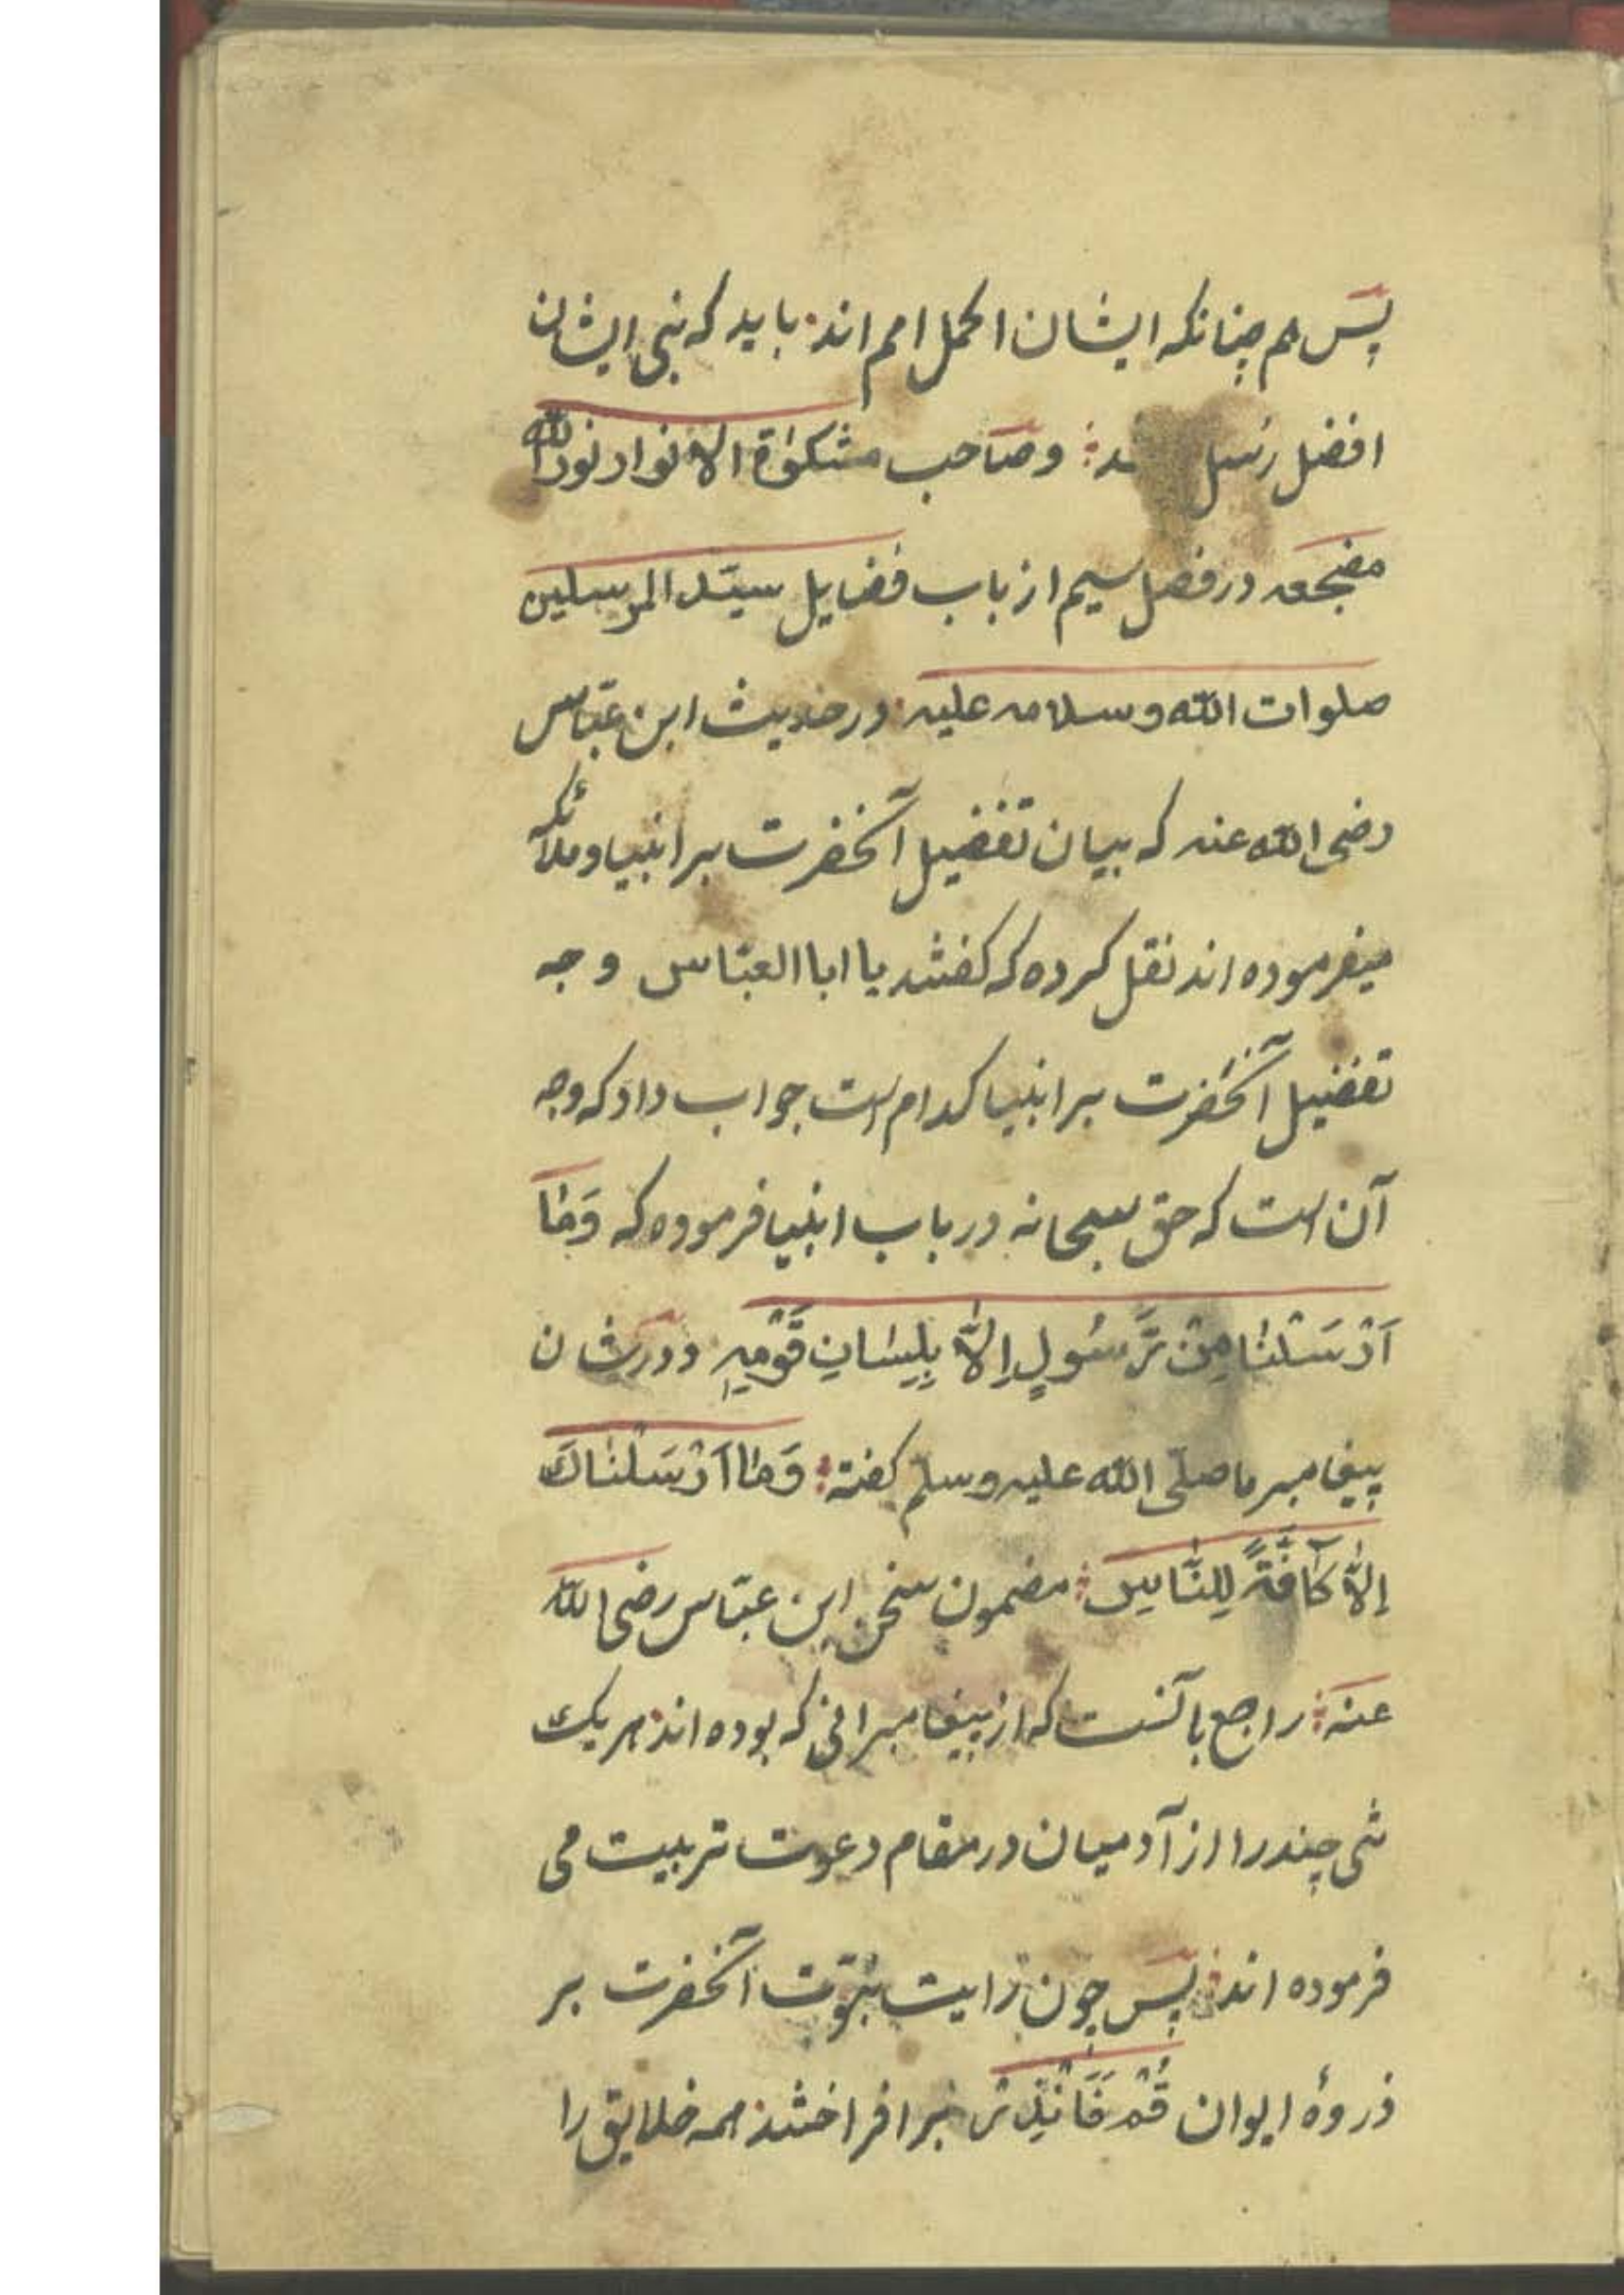 پَس هم چنانکه ایشان اکمل امم اند باید که نبی ایشان
افضل رسل ـد و صاحب مشکوٰة الانوار نورالله
مضجعه در فصل سیم از باب فضایل سیّد المرسلین
صلوات الله وسلامه علیه در حدیث ابن عبّاس
رضی الله عنه که بیان تفضیل آنحضرت بر انبیا و ملائکه
میفرموده اند نقل کرده که گفتند یا ابا العبّاس وجه
تفضیل آنحضرت بر انبیا کدام است جواب داد که وجه
آن است که حق سبحانه در باب انبیا فرموده که وَمٰا
اَرْسَلْنٰا مِنْ رَّسُولٍ اِلاّٰ بِلِسٰانِ قَوْمِهِ و در شان
پیغامبر ما صلّی الله علیه وسلّم گفته وَمٰا اَرْسَلْنٰاكَ
اِلاّٰ كٰآفَّةً لِلنّٰاسِ مضمون سخن ابن عبّاس رضی الله
عنه راجع بآنست که از پیغامبرانی که بوده اند هر یک
تنی چند را از آدمیان در مقام دعوت تربیت می
فرموده اند پَس چون رایت نبوّت آنحضرت بر
ذروهٔ ایوان قُمْ فَاَنْذِرْ بر افراختند همه خلایق را